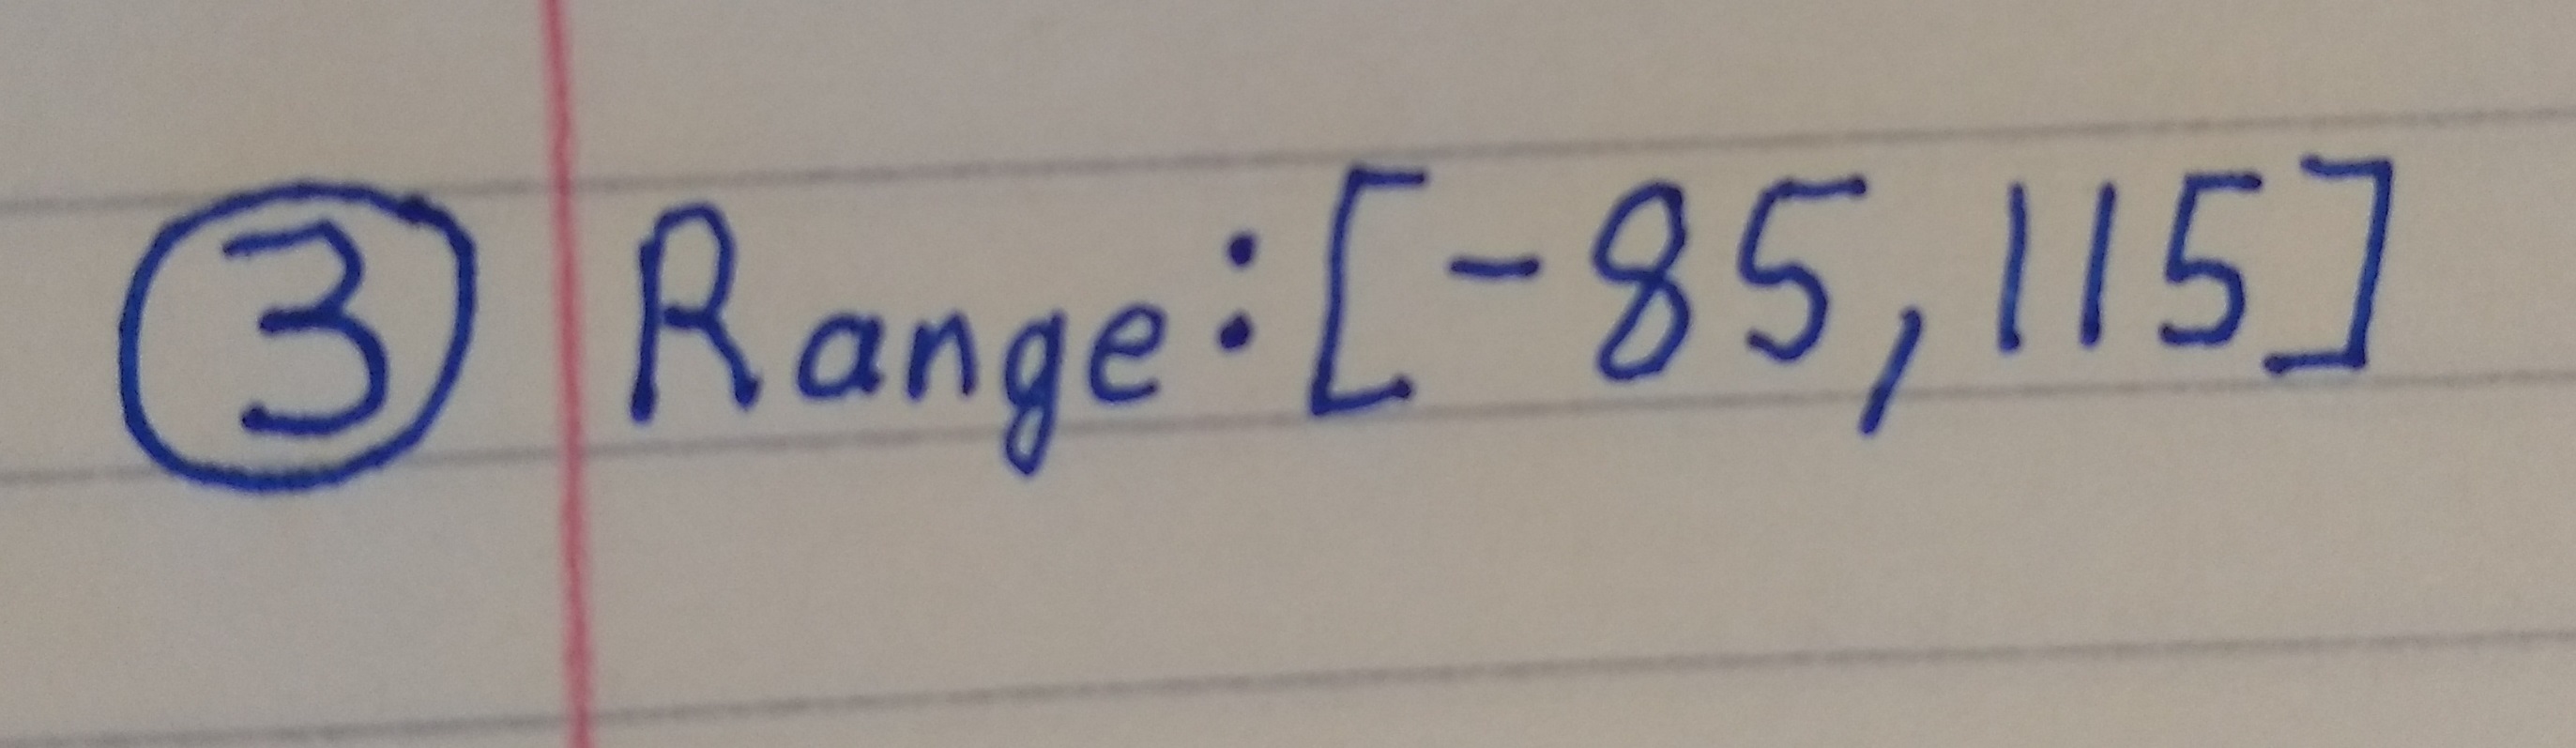 ③ Range: [-85, 115]